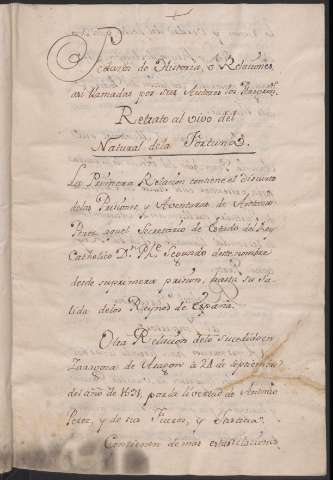 Pedazos de Historia, ò Relaciones,
asi llamadas por sus Autores los Peregrin.
Retrato al vivo del
Natural dela Fortuna.
La Primera Relacion contiene el discurso
delas Prisiones, y Aventuras de Antonio
Perez, aquel Secretario de Estado del Rey
Catholico Dn. Phe. Segundo deste nombre
desde su primera prision, hasta su sa
lida delos Reynos de España.
Otra Relacion delo Sucedido en
Zaragoza de Aragon à 24 de septiembre
del año de 1591, por la libertad de Antonio
Perez, y de sus Fueros, y Justicia.
Contienen de mas estas Relaciones